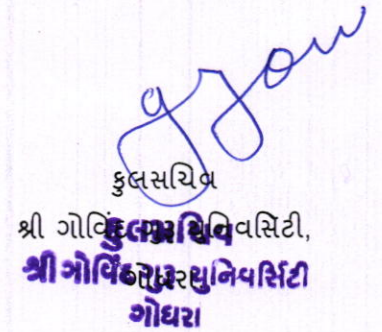 કુલસચિવ
શ્રી ગોવિંદ ગુરુ યુનિવર્સિટી,
ગોધરા
કુલસચિવ
શ્રી ગોવિંદ ગુરુ યુનિવર્સિટી
ગોધરા